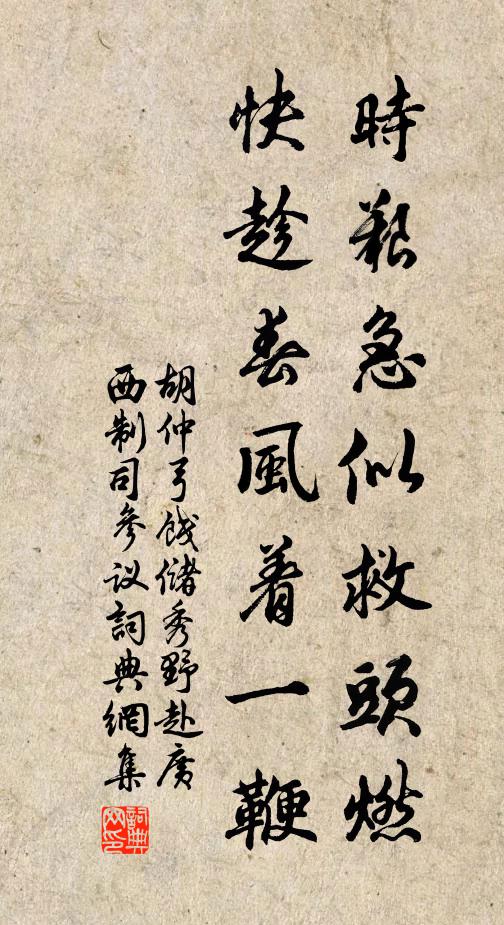 時艱急似救頭燃
快趁春風着一鞭
胡仲弓餞儲秀野赴廣
西制司參议詞典網集
詞典网印